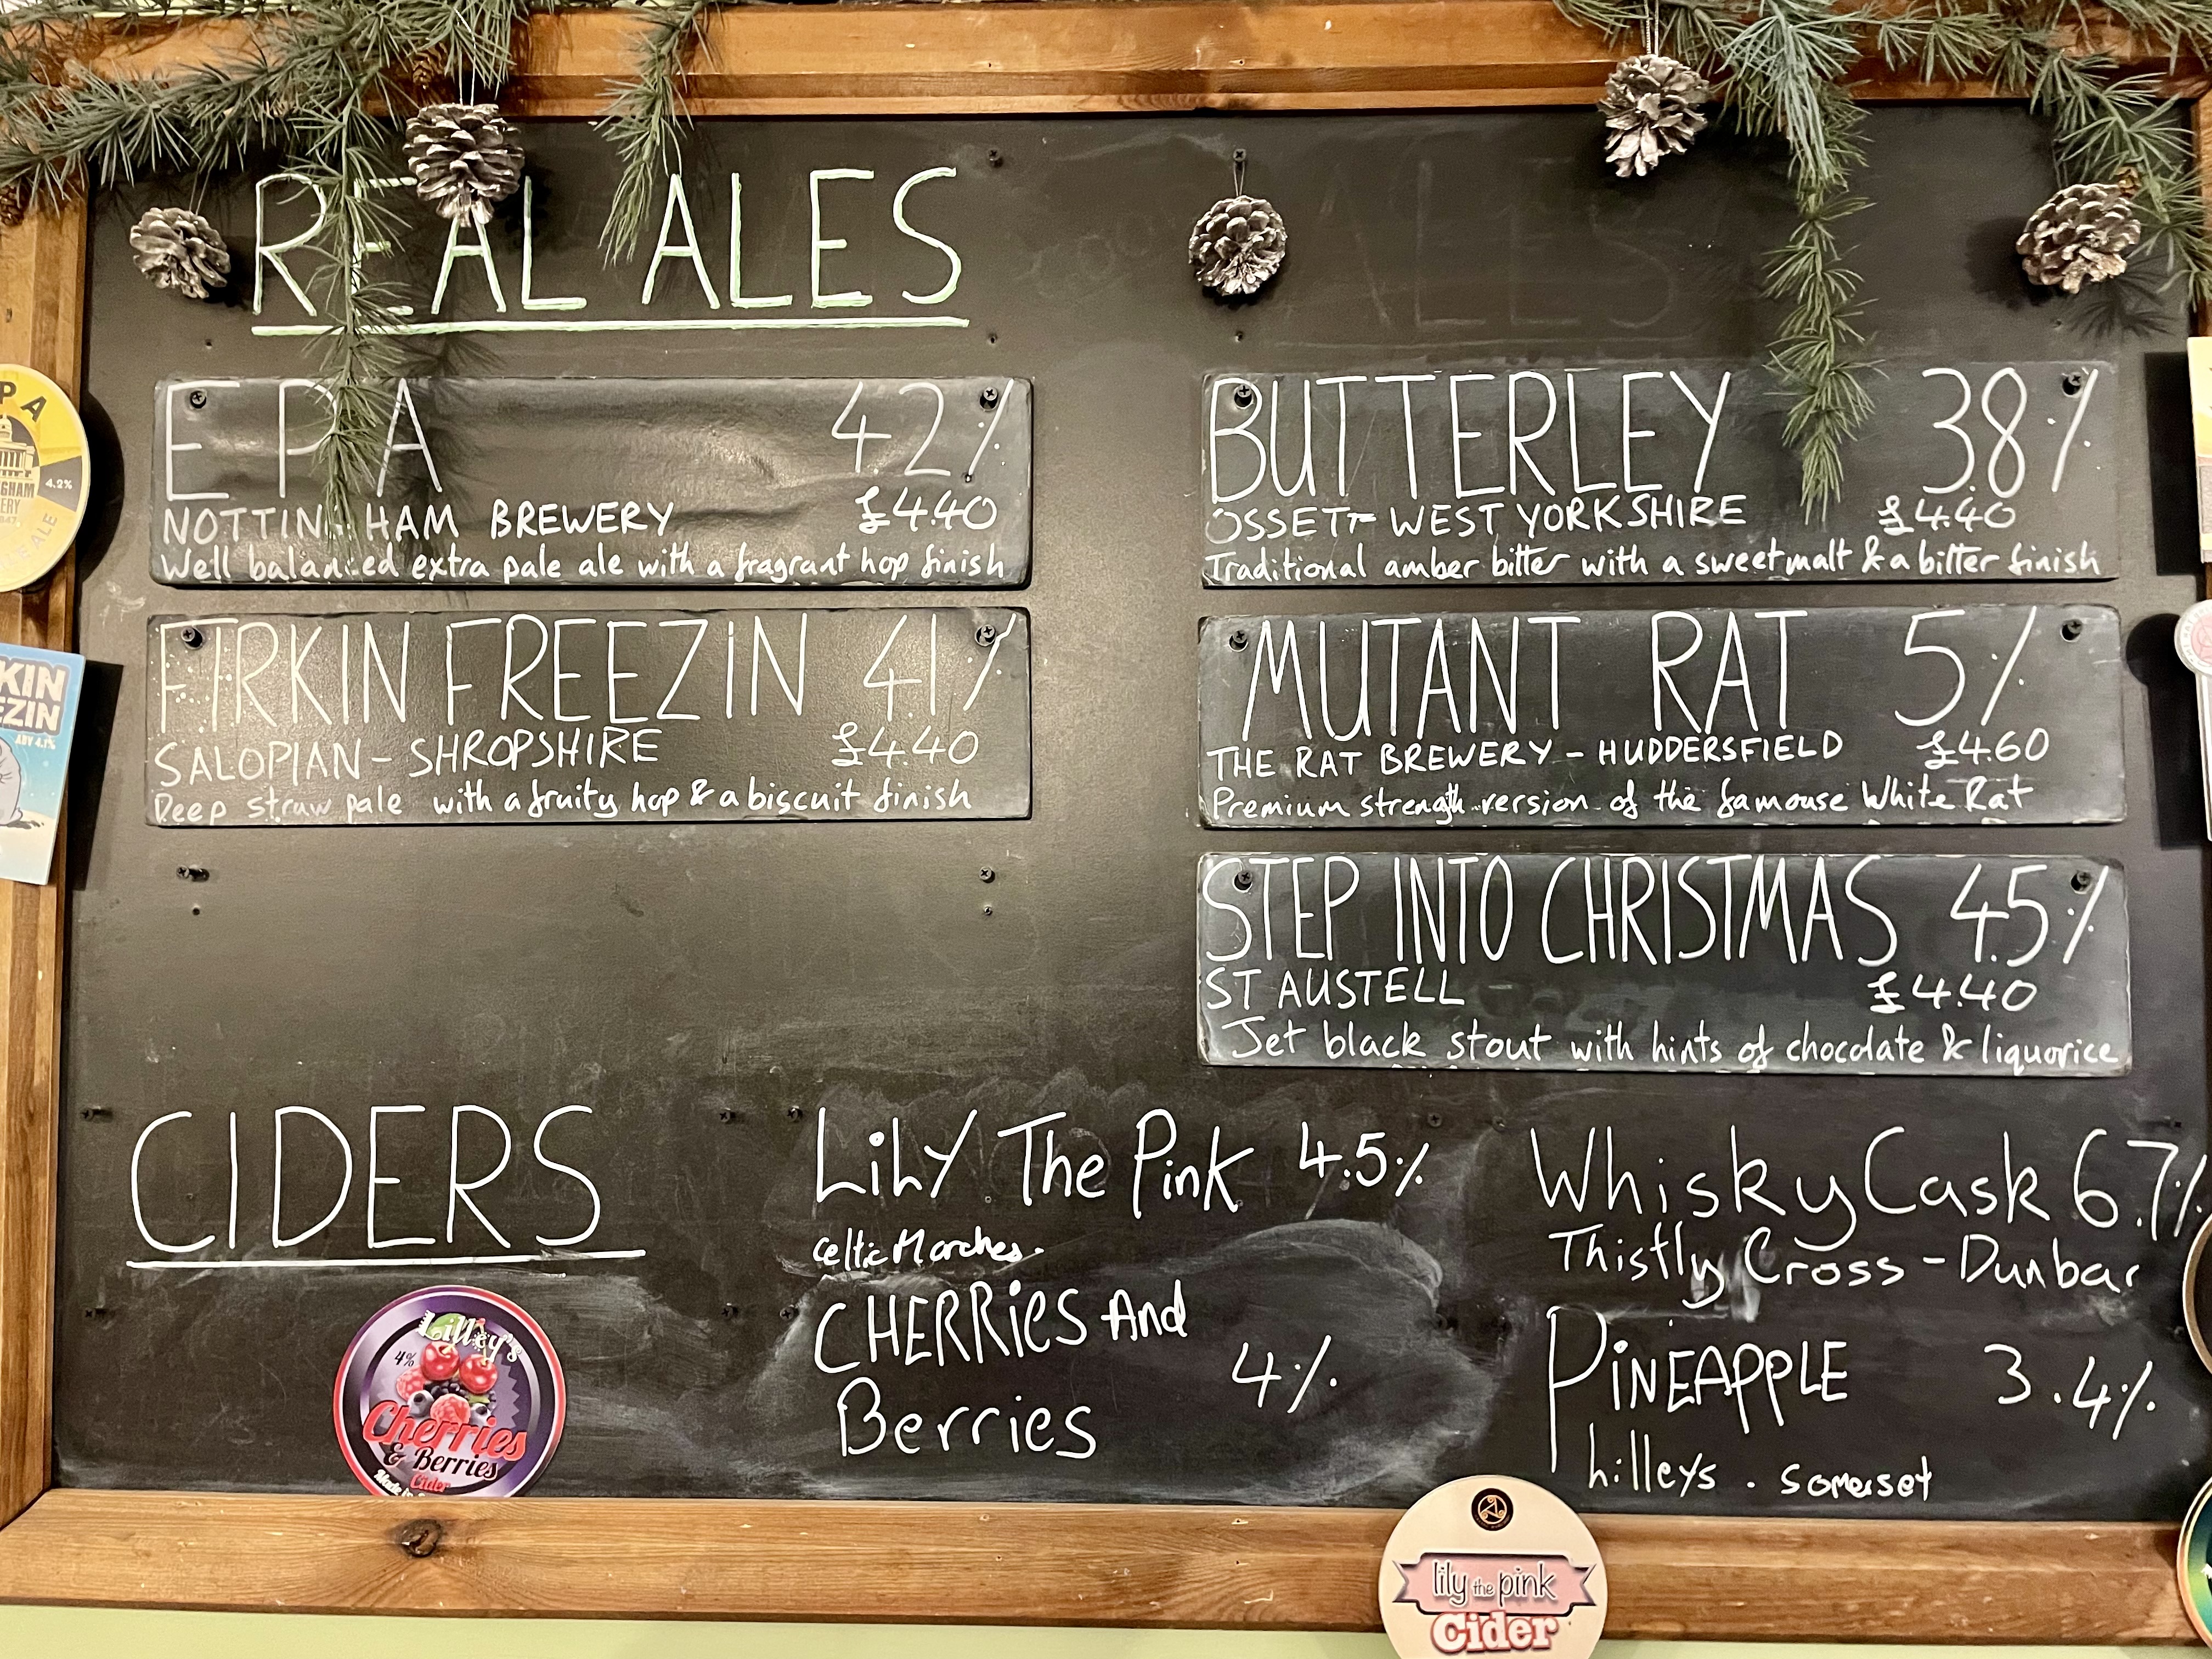 REAL ALES
ALES
EPA 4.2%
NOTTINGHAM BREWERY £4.40
Well balanced extra pale ale with a fragrant hop finish
FIRKIN FREEZIN 4.1%
SALOPIAN - SHROPSHIRE £4.40
Deep straw pale with a fruity hop & a biscuit finish
BUTTERLEY 3.8%
OSSETT - WEST YORKSHIRE £4.40
Traditional amber bitter with a sweet malt & a bitter finish
MUTANT RAT 5%
THE RAT BREWERY - HUDDERSFIELD £4.60
Premium strength version of the famouse White Rat
STEP INTO CHRISTMAS 4.5%
ST AUSTELL £4.40
Jet black stout with hints of chocolate & liquorice
CIDERS
LiLY The Pink 4.5%
Celtic Marches.
CHERRies And
Berries 4%
Whisky Cask 6.7%
Thistly Cross - Dunbar
PiNEAPPLE 3.4%
Lilleys. Somerset
Lilley's
4%
Cherries
& Berries
Cider
lily the pink
Cider
PA
GHAM
ERY
4.2%
LE ALE
KIN
EZIN
ABV 4.1%